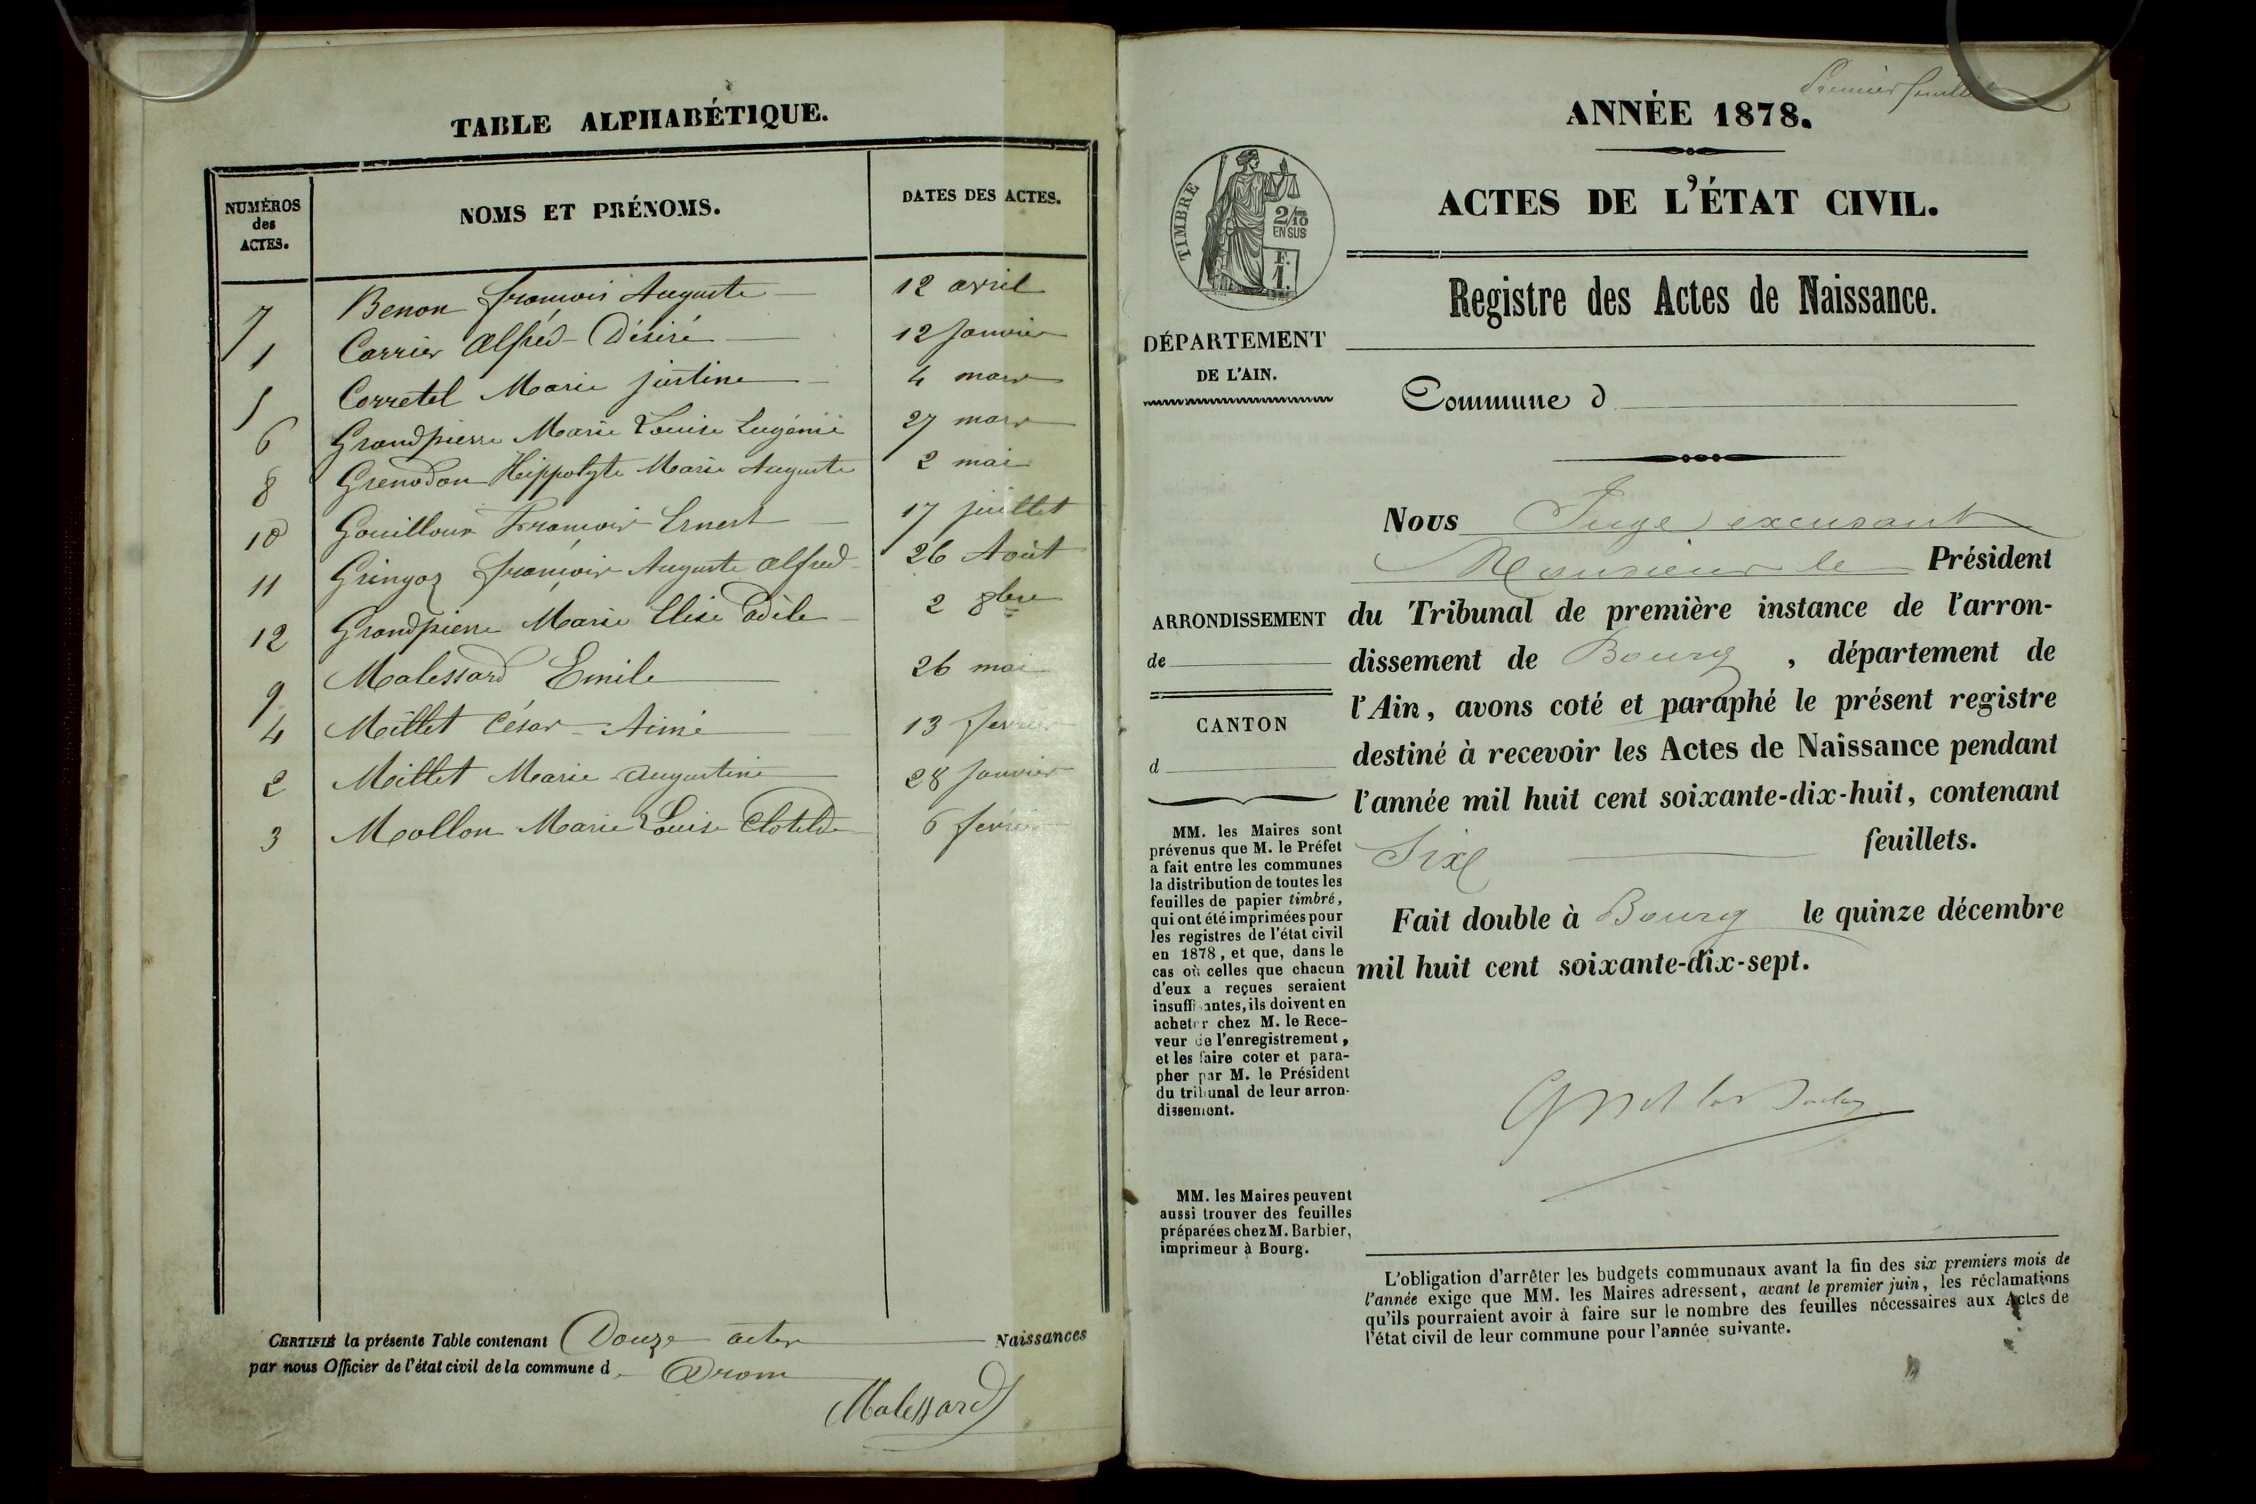 TABLE ALPHABÉTIQUE.
NUMÉROS des ACTES.
NOMS ET PRÉNOMS.
DATES DES ACTES.
7 Benon françois Auguste 12 avril
1 Carrier Alfred Désiré 12 Janvier
5 Corretel Marie justine 4 mars
6 Grandpierre Marie Louise Eugénie 27 mars
8 Grenodon Hippolyte Marie Auguste 2 mai
10 Gouilloux François Ernest 17 juillet
11 Gringoz françois Auguste Alfred 26 Août
12 Grandpierre Marie Elise Adèle 2 8bre
9 Malessard Emile 26 mai
4 Millet César Aimé 13 fevrier
2 Millet Marie Augustine 28 Janvier
3 Mollon Marie Louise Clotilde 6 fevrier
CERTIFIÉ la présente Table contenant Douze actes Naissances
par nous Officier de l'état civil de la commune d Drom
Malessard
Premier feuillet
ANNÉE 1878.
ACTES DE L'ÉTAT CIVIL.
TIMBRE
2/10 EN SUS
F. 1.
Registre des Actes de Naissance.
DÉPARTEMENT
DE L'AIN.
Commune d
Nous Juge excusant
Monsieur le Président
du Tribunal de première instance de l'arron-
dissement de Bourg , département de
l'Ain, avons coté et paraphé le présent registre
destiné à recevoir les Actes de Naissance pendant
l'année mil huit cent soixante-dix-huit, contenant
Six feuillets.
Fait double à Bourg le quinze décembre
mil huit cent soixante-dix-sept.
ARRONDISSEMENT
de
CANTON
d
MM. les Maires sont
prévenus que M. le Préfet
a fait entre les communes
la distribution de toutes les
feuilles de papier timbré,
qui ont été imprimées pour
les registres de l'état civil
en 1878, et que, dans le
cas où celles que chacun
d'eux a reçues seraient
insuffisantes, ils doivent en
acheter chez M. le Rece-
veur de l'enregistrement,
et les faire coter et para-
pher par M. le Président
du tribunal de leur arron-
dissement.
MM. les Maires peuvent
aussi trouver des feuilles
préparées chez M. Barbier,
imprimeur à Bourg.
L'obligation d'arrêter les budgets communaux avant la fin des six premiers mois de
l'année exige que MM. les Maires adressent, avant le premier juin, les réclamations
qu'ils pourraient avoir à faire sur le nombre des feuilles nécessaires aux Actes de
l'état civil de leur commune pour l'année suivante.